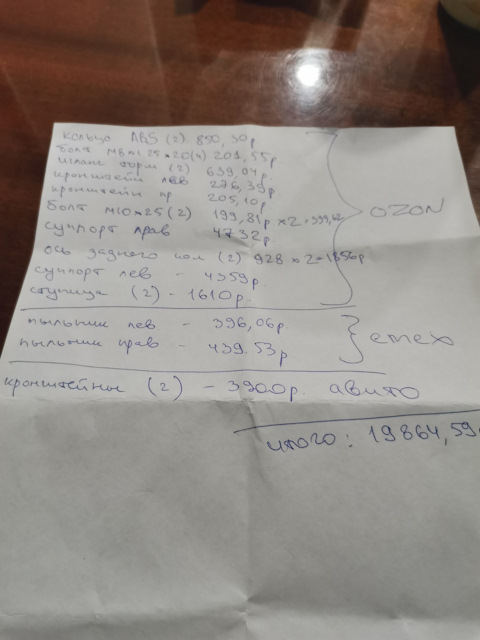 кольцо ABS (2) 850,30р
болт М8х1.25*20(4) 201,55р
шланг торм (2) 639,04р
кронштейн лев 276,39р
кронштейн пр 205,10р
болт М10*25(2) 199,81р х2=399,62
суппорт прав 4732р
OZON
ось заднего кол (2) 928 х2=1856р
суппорт лев - 4359р
ступица (2) - 1610р.
пыльник лев - 396,06р.
пыльник прав - 439.53р
emex
кронштейны (2) - 3900р. авито
итого: 19864,59